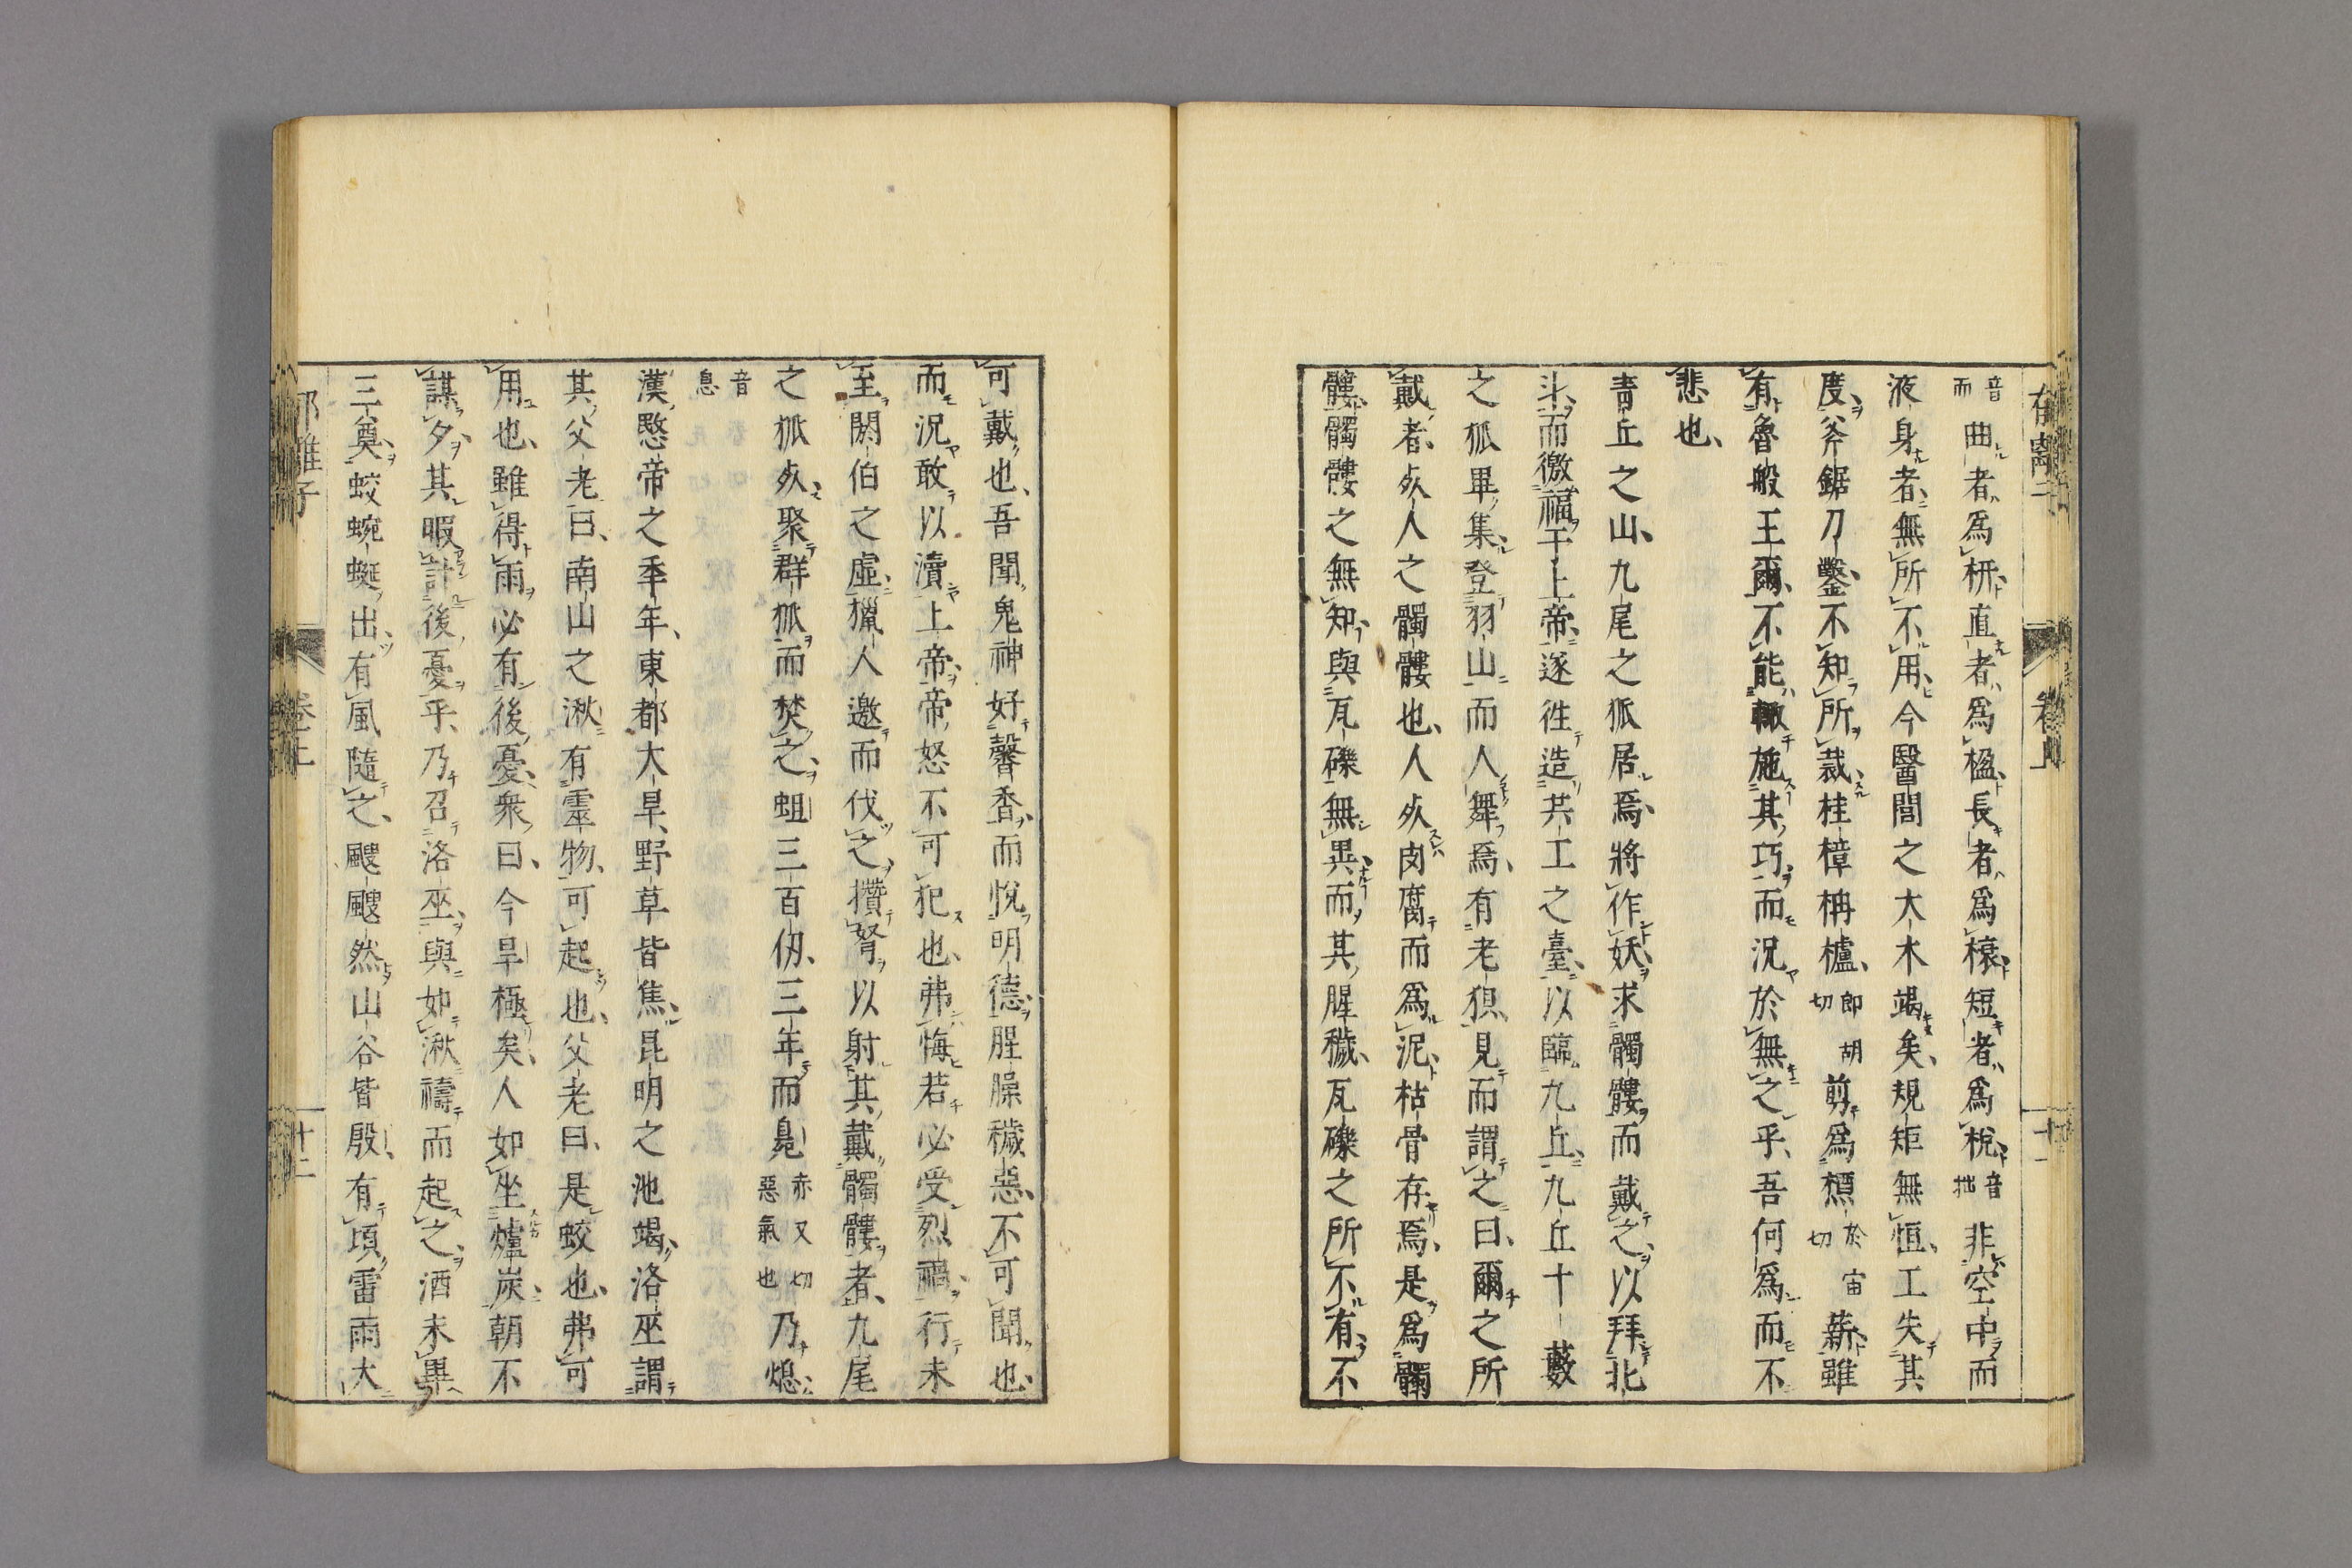 音而曲者爲枅直者爲楹長者爲榱短者爲梲音拙非空中而
液身者無所不用今醫閭之大木竭矣規矩無恒工失其
度斧鋸刀鑿不知所裁桂樟柟櫨即胡切剪爲樌於宙切薪雖
有魯般王爾不能輙施其巧而況於無之乎吾何爲而不
悲也
青丘之山九尾之狐居焉將作妖求髑髏而戴之以拜北
斗而徼福于上帝遂徃造共工之臺以臨九丘九丘十藪
之狐畢集登羽山而人舞焉有老狽見而謂之曰爾之所
戴者死人之髑髏也人死肉腐而爲泥枯骨存焉是爲髑
髏髑髏之無知與瓦礫無異而其腥穢瓦礫之所不有不
可戴也吾聞鬼神好馨香而悅明德腥臊穢惡不可聞也
而況敢以瀆上帝帝怒不可犯也弗悔若必受烈禍行未
至閼伯之虛獵人邀而伐之攢弩以射其戴髑髏者九尾
之狐死聚群狐而焚之蛆三百仭三年而臭赤又切惡氣也乃熄
音息
漢愍帝之季年東都大旱野草皆焦昆明之池竭洛巫謂
其父老曰南山之湫有靈物可起也父老曰是蛟也弗可
用也雖得雨必有後憂衆曰今旱極矣人如坐爐炭朝不
謀夕其暇計後憂乎乃召洛巫與如湫禱而起之酒未畢
三奠蛟蜿蜒出有風隨之颼颼然山谷皆殷有頃雷雨大
郁離子 卷上 十二
卷上 十一